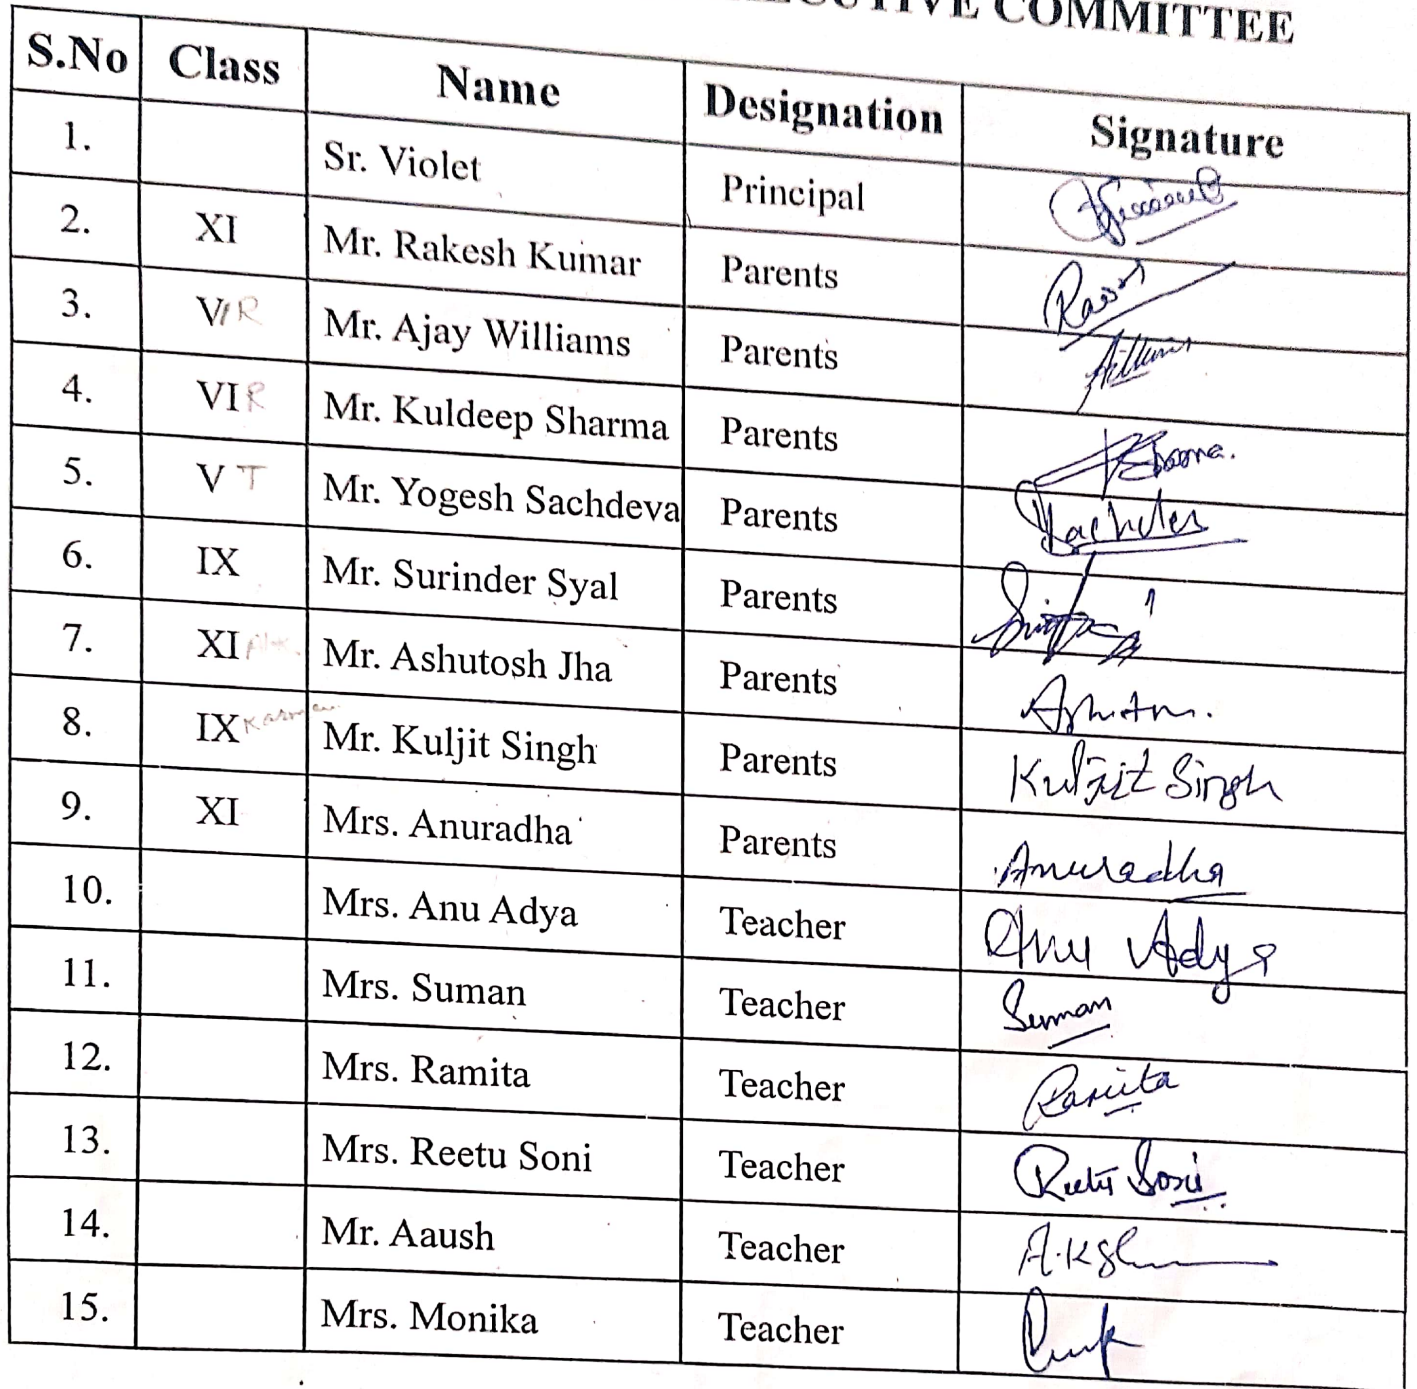 COMMITTEE
S.No Class Name Designation Signature
1. Sr. Violet Principal
2. XI Mr. Rakesh Kumar Parents
3. V R Mr. Ajay Williams Parents
4. VI R Mr. Kuldeep Sharma Parents
5. V T Mr. Yogesh Sachdeva Parents
6. IX Mr. Surinder Syal Parents
7. XI Mr. Ashutosh Jha Parents
8. IX Mr. Kuljit Singh Parents Kuljit Singh
9. XI Mrs. Anuradha Parents Anuradha
10. Mrs. Anu Adya Teacher Anu Adya
11. Mrs. Suman Teacher Suman
12. Mrs. Ramita Teacher Ramita
13. Mrs. Reetu Soni Teacher Reetu Soni
14. Mr. Aaush Teacher
15. Mrs. Monika Teacher